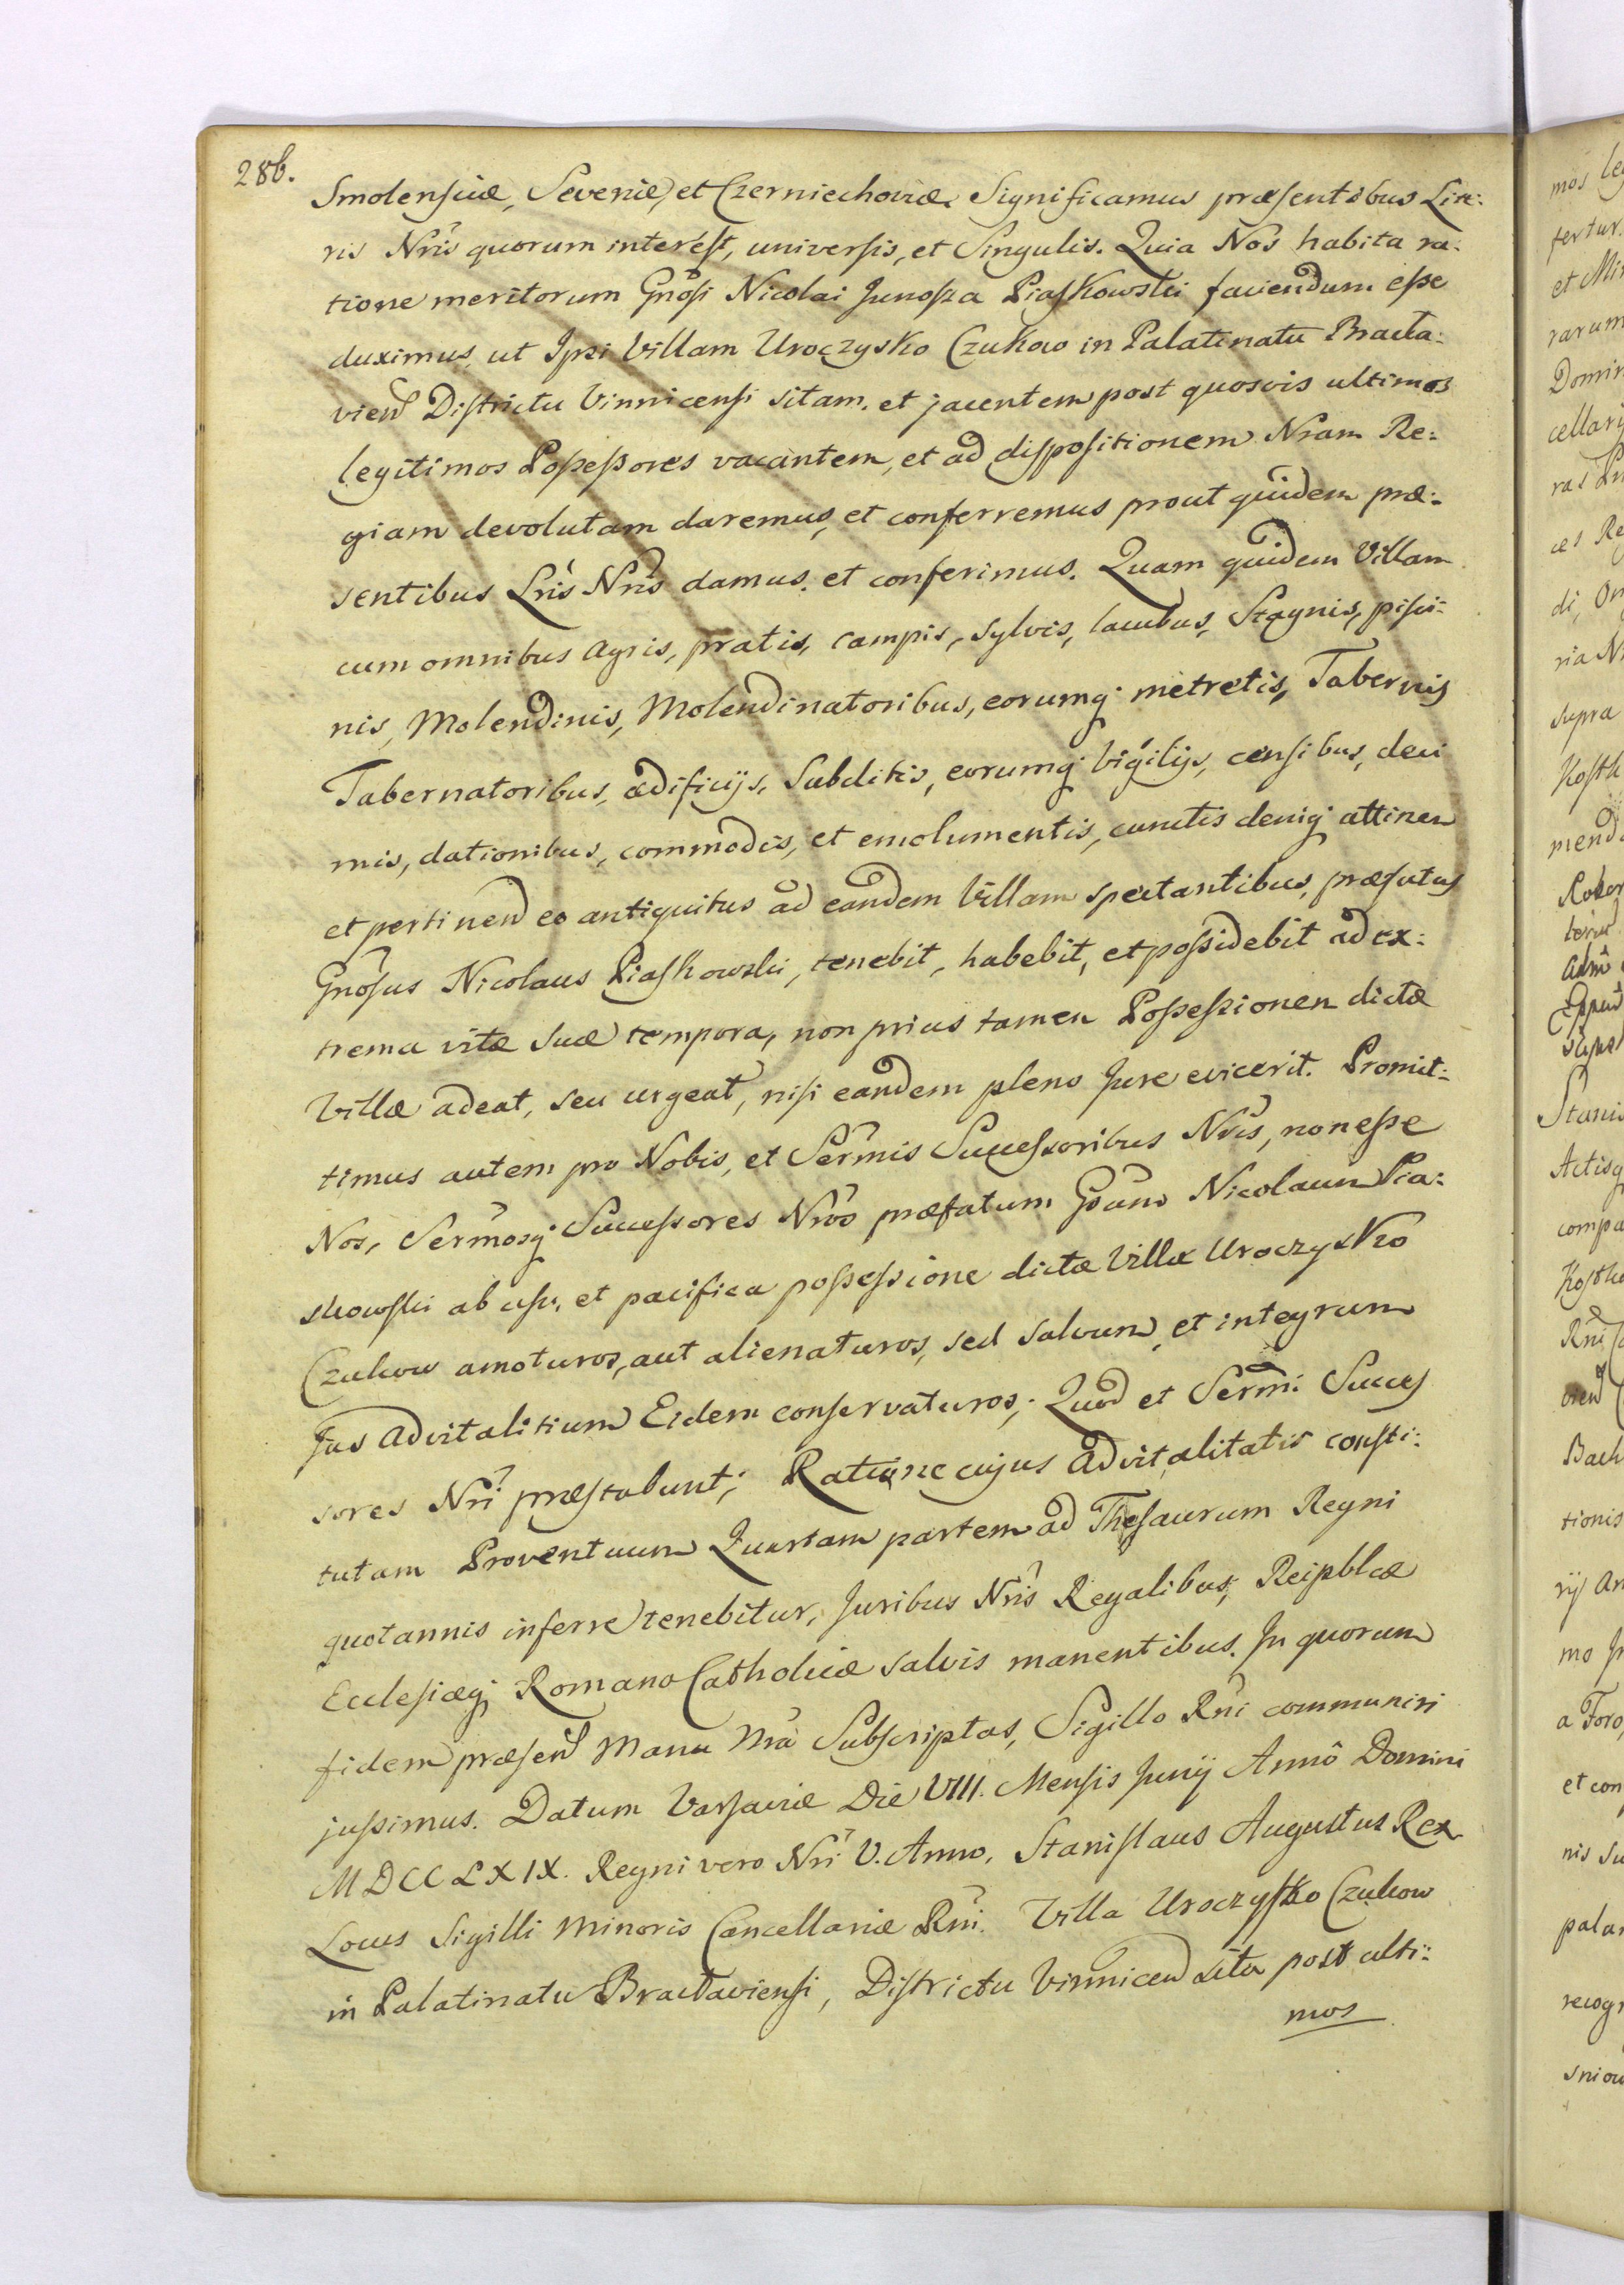 286.
Smolensciæ, Severiæ, et Czerniechoviæ Significamus præsentibus Litte:
ris Nris quorum interest, universis, et Singulis. Quia Nos habita ra:
tione meritorum Gnosi Nicolai Junosza Piaskowski faciendum esse
duximus, ut Ipsi Villam Uroczysko Czukow in Palatinatu Bracla:
vien Districtu Vinnicensi sitam, et jacentem post quosvis ultimos
legitimos Possessores vacantem, et ad dispositionem Nram Re:
giam devolutam daremus, et conferremus prout quidem præ:
sentibus Lris Nris damus, et conferimus. Quam quidem Villam
cum omnibus Agris, pratis, campis, sylvis, lacubus, Stagnis, pisci:
nis, Molendinis, Molendinatoribus, eorumq; metretis, Tabernis
Tabernatoribus, ædificijs, Subditis, eorumq; Vigilijs, censibus, deci
mis, dationibus, commodis, et emolumentis, cunctis deniq; attinen
et pertinen eo antiquitus ad eandem Villam spectantibus, præfatus
Gnosus Nicolaus Piaskowski, tenebit, habebit, et possidebit ad ex:
trema vitæ suæ tempora, non prius tamen Possessionem dictæ
Villæ adeat, seu urgeat, nisi eandem pleno Jure evicerit. Promit:
timus autem pro Nobis, et Sermis Successoribus Nris, non esse
Nos, Sermosq; Successores Nros præfatum Gsum Nicolaum Pia:
skowski ab usu, et pacifica possessione dictæ Villæ Uroczysko
Czukow amoturos, aut alienaturos, sed salvum, et integrum
Jus Advitalitium Eidem conservaturos; Quod et Sermi Succes
sores Nri præstabunt; Ratione cujus Advitalitatis consti:
tutam Proventuum Quartam partem ad Thesaurum Regni
quotannis inferre tenebitur, Juribus Nris Regalibus, Reipblcæ
Ecclesiæq; Romano Catholicæ salvis manentibus. In quorum
fidem præsen Manu Nra Subscriptas, Sigillo Rni communiri
jussimus. Datum Varsaviæ Die VIII. Mensis Junij Anno Domini
MDCCLXIX. Regni vero Nri V. Anno. Stanislaus Augustus Rex
Locus Sigilli Minoris Cancellariæ Rni. Villa Uroczysko Czukow
in Palatinatu Braclaviensi, Districtu Vinnicen sita post ulti:
mos